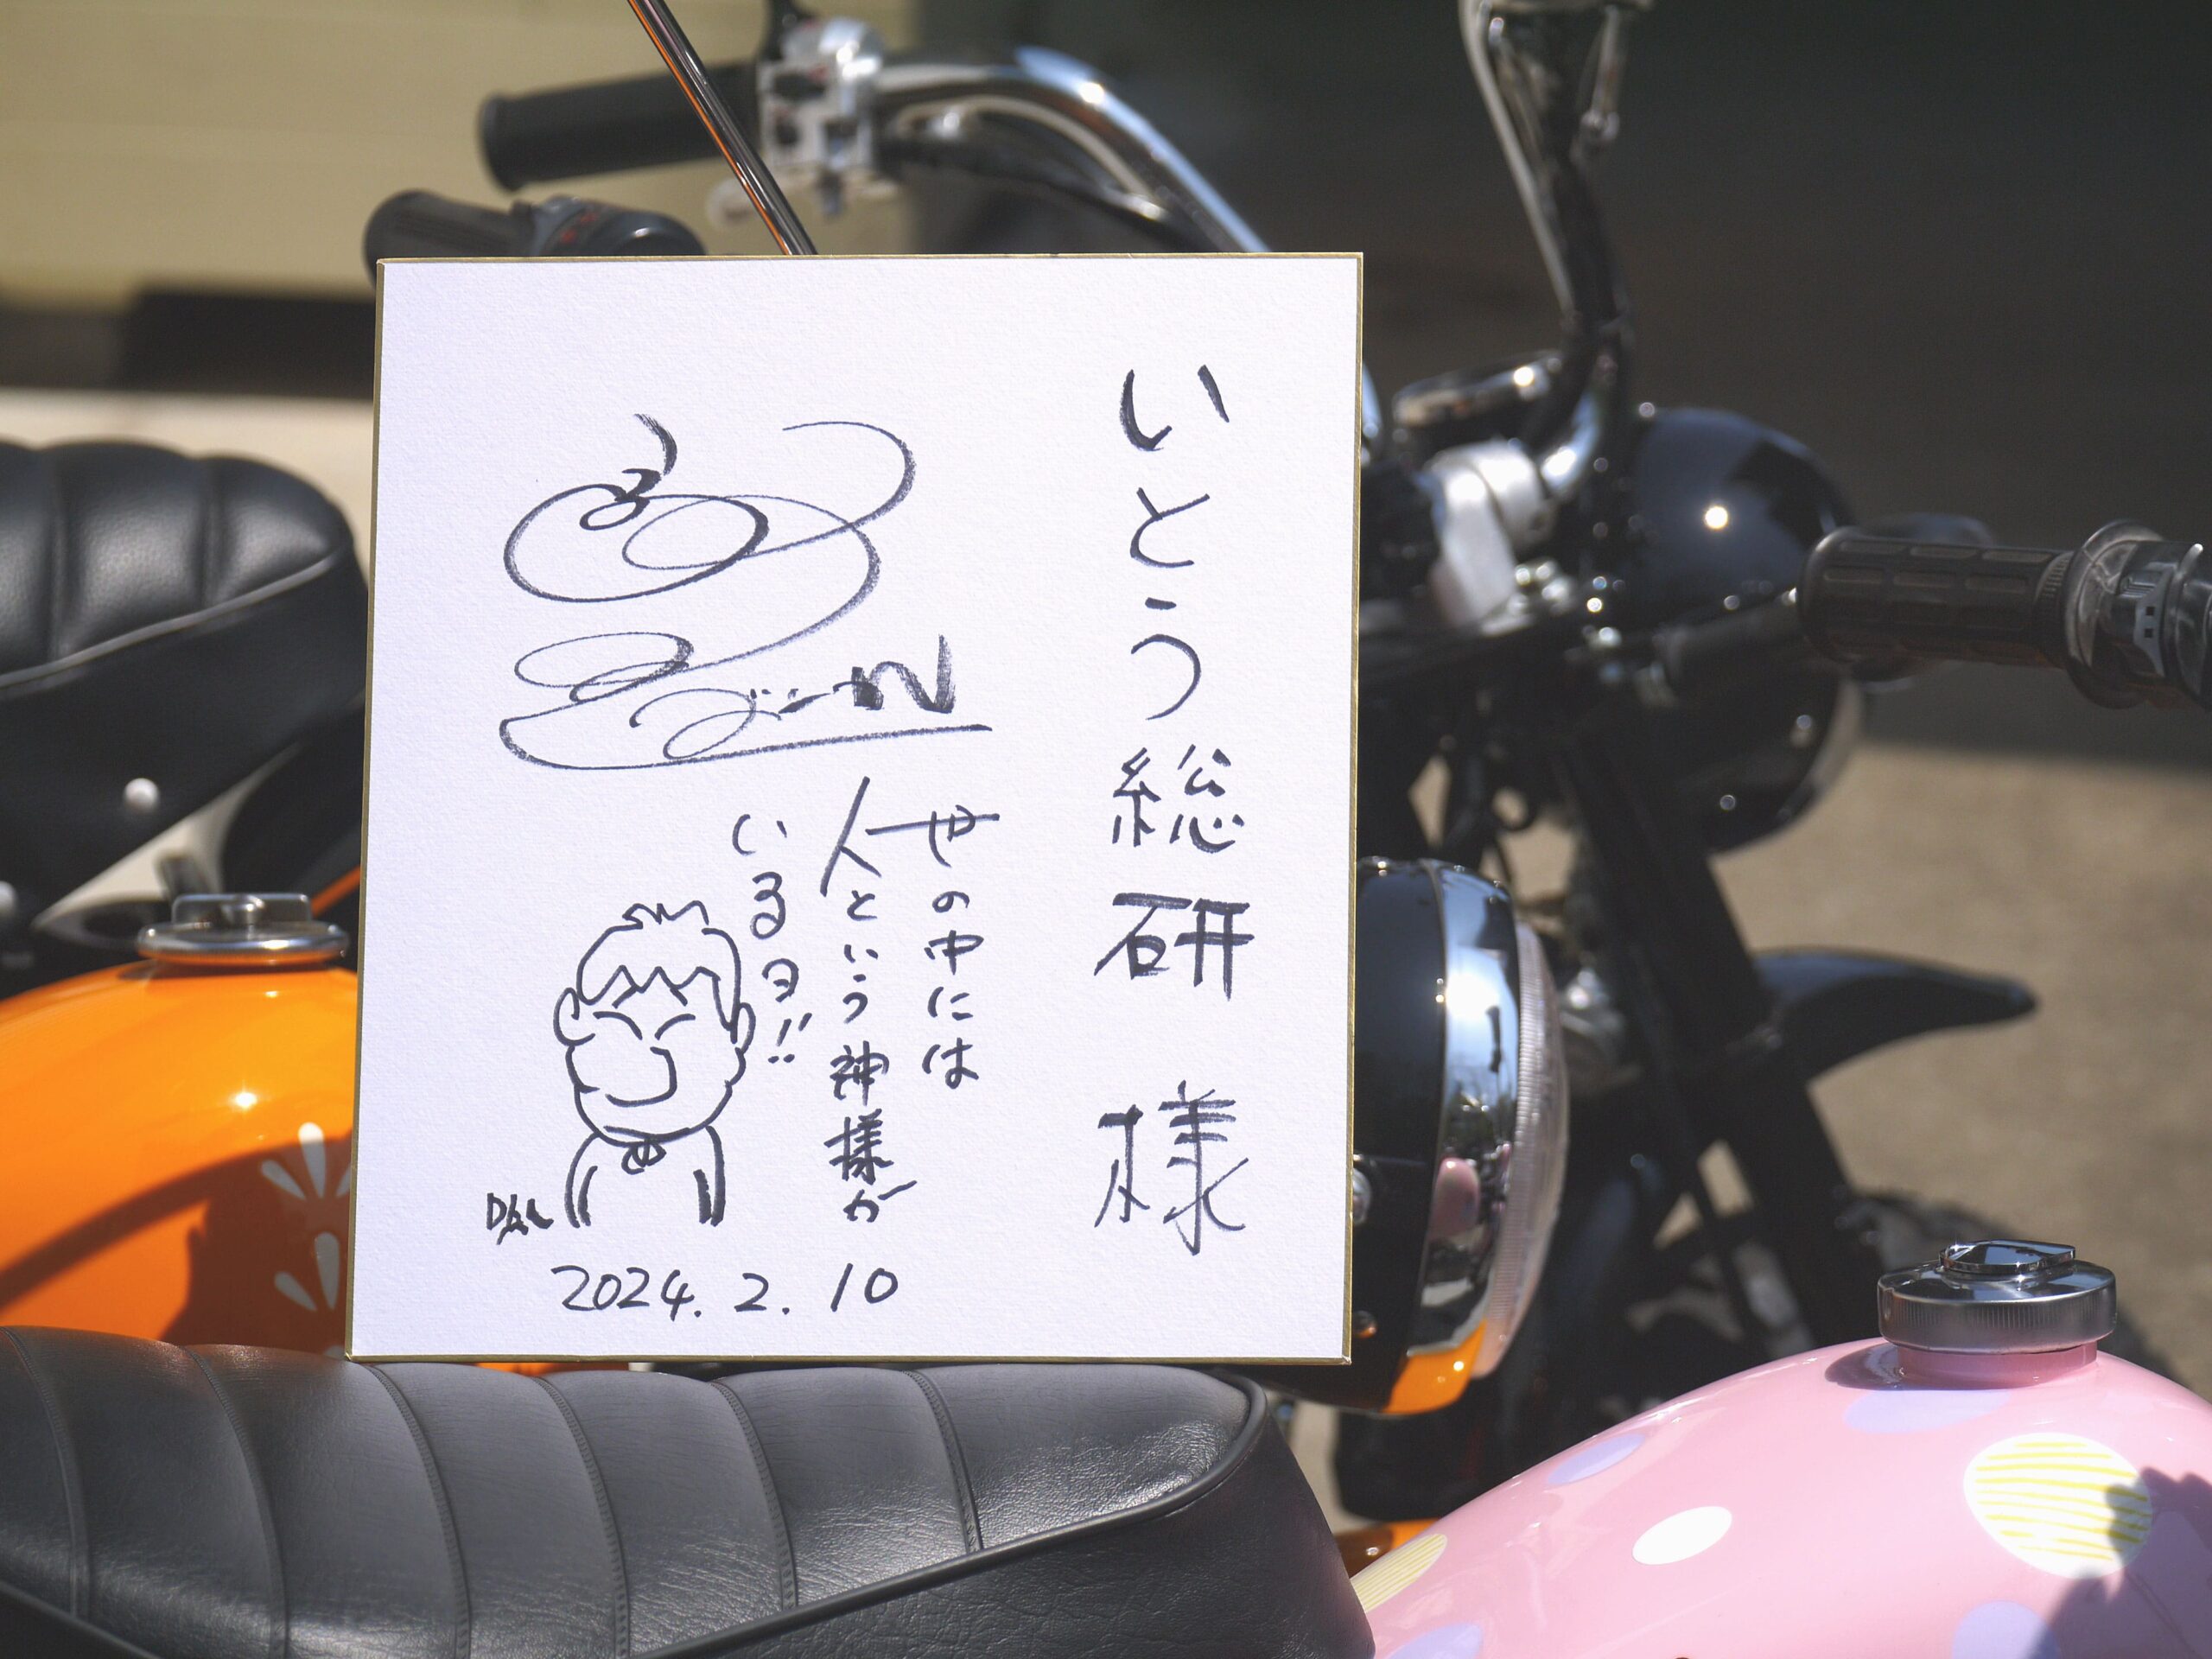 いとう総研 様
世の中には
人という神様が
いるヨ!!
2024.2.10